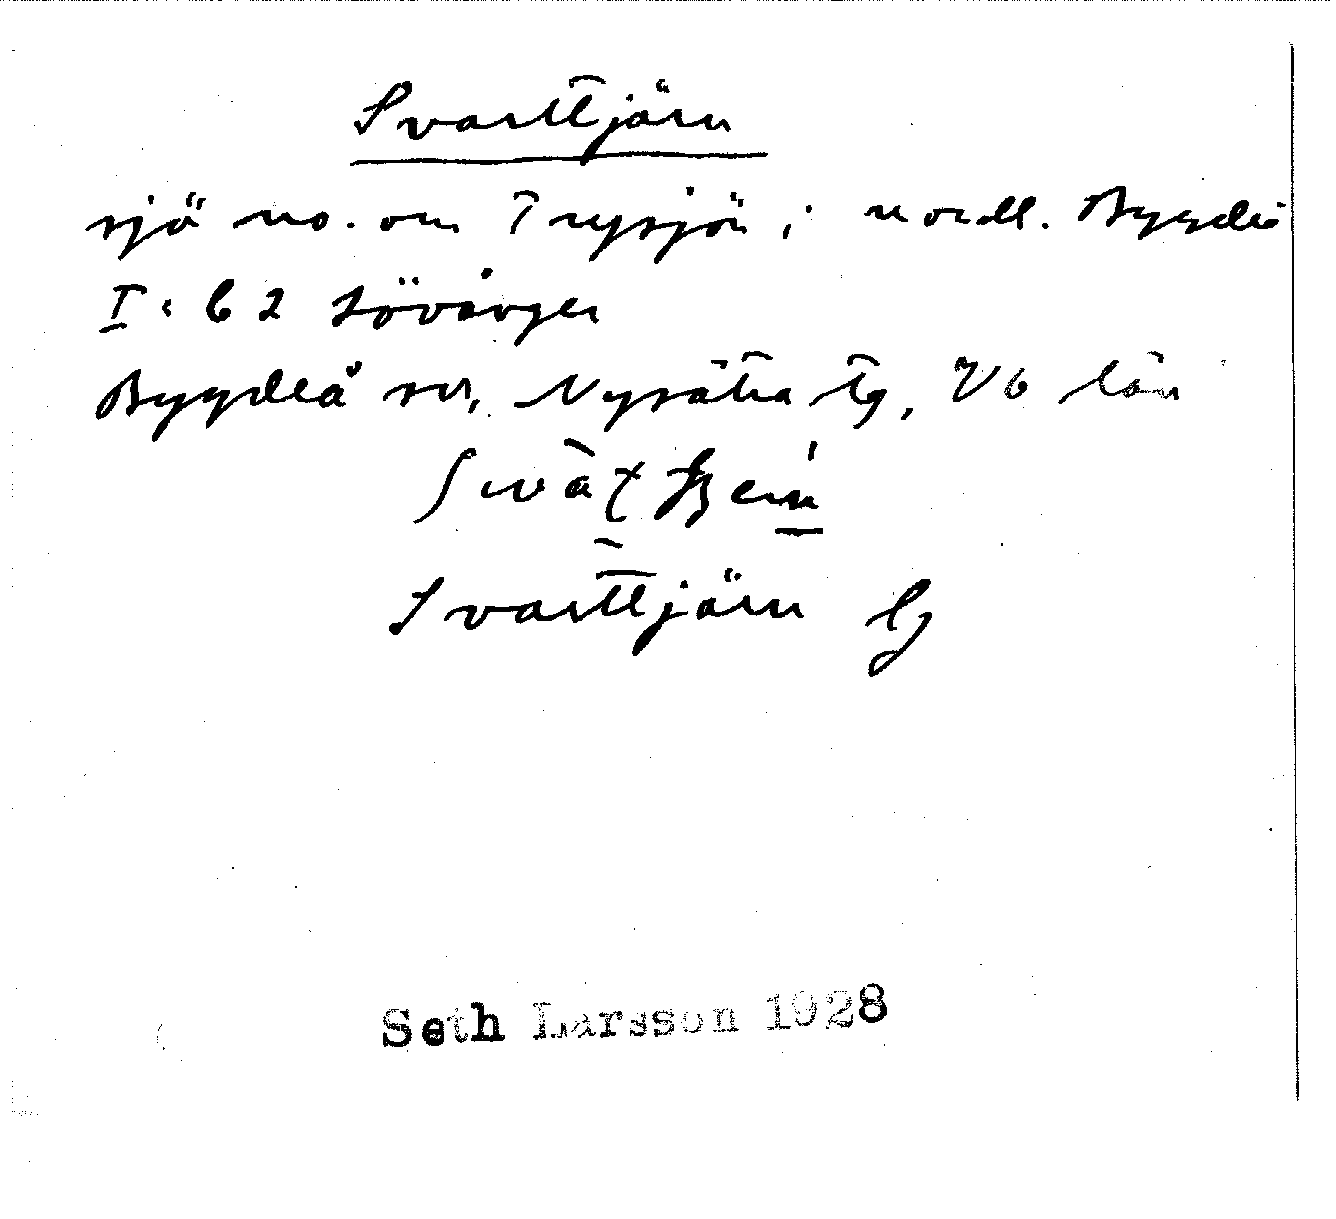 Svarttjärn
sjö no. om Trysjön i nordl. Bygdeå
I: 62 Lövånger
Bygdeå sn, Nysätra tg, Vb län
Svarttjärn
Seth Larsson 1928